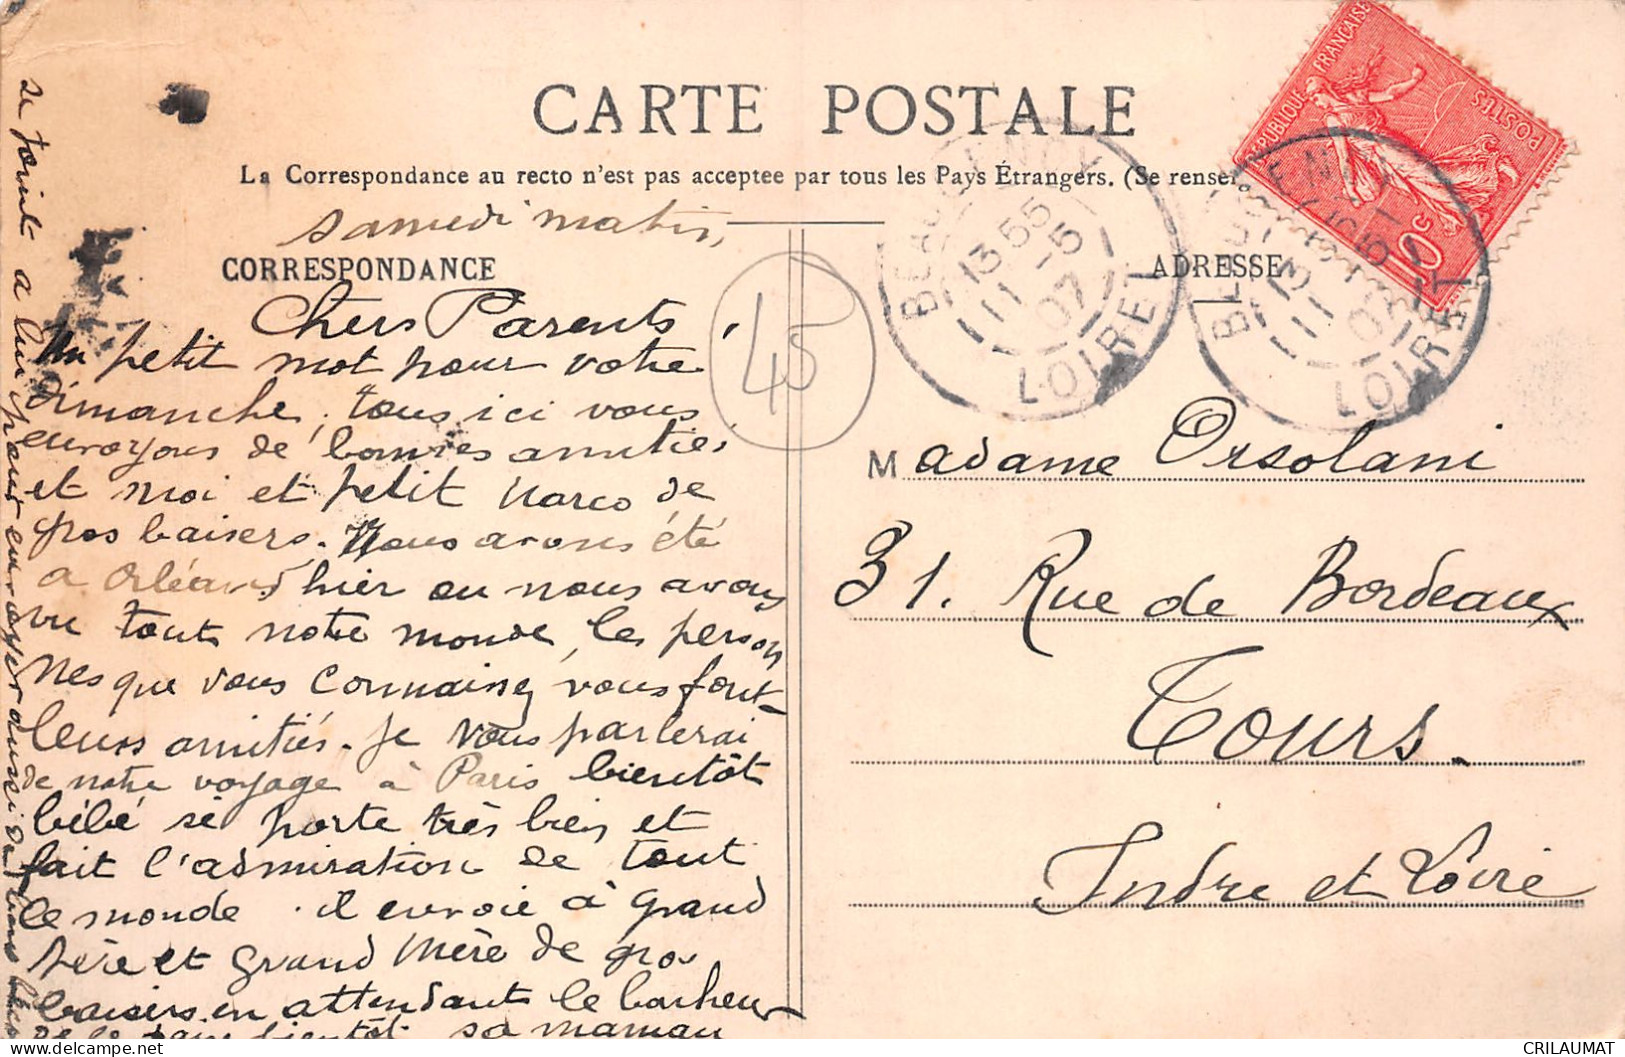 CARTE POSTALE
La Correspondance au recto n'est pas acceptee par tous les Pays Étrangers. (Se renseig
samedi matin,
CORRESPONDANCE
ADRESSE
Chers Parents,
Un petit mot pour votre
dimanche, tous ici vous
envoyons de bonnes amitiés
et moi et petit Marco de
gros baisers. Nous avons été
a Orléans hier ou nous avons
vu tout notre monde, les person
nes que vous connaissez vous font
leurs amitiés. Je vous parlerai
de notre voyage à Paris bientôt
bébé se porte très bien et
fait l'admiration de tout
le monde. il envoie à grand
Père et grand Mère de gros
baisers en attendant le bonheur
de le faire bientôt. sa maman
se joint a lui pour envoyer aussi de
45
Madame Orsolani
31. Rue de Bordeaux
Tours.
Indre et Loire
REPUBLIQUE FRANÇAISE
POSTES
10c
BEAUGENCY
13 55
11 - 5
07
LOIRET
BEAUGENCY
13 55
11 - 5
07
LOIRET
CRILAUMAT